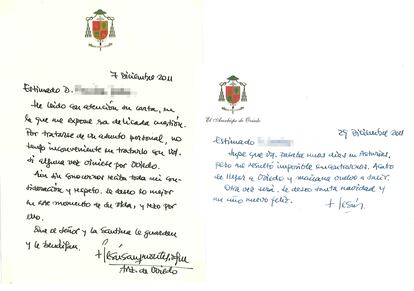 7 Diciembre 2011
Estimado D.
He leído con atención su carta, en
la que me expone su delicada cuestión.
Por tratarse de un asunto personal, no
tengo inconveniente en tratarlo con Vd.
si alguna vez viniese por Oviedo.
Aún sin conocernos reciba toda mi con-
sideración y respeto. Le deseo lo mejor
en ese momento de su vida, y rezo por
ello.
Que el Señor y la Santina le guarden
y le bendigan.
Arz. de Oviedo
El Arzobispo de Oviedo
29 Diciembre 2011
Estimado
Supe que Vd. estaba unos días en Asturias,
pero me resultó imposible encontrarnos. Acabo
de llegar a Oviedo y mañana vuelvo a salir.
Otra vez será. Le deseo santa navidad y
un año nuevo feliz.
+ Jesús